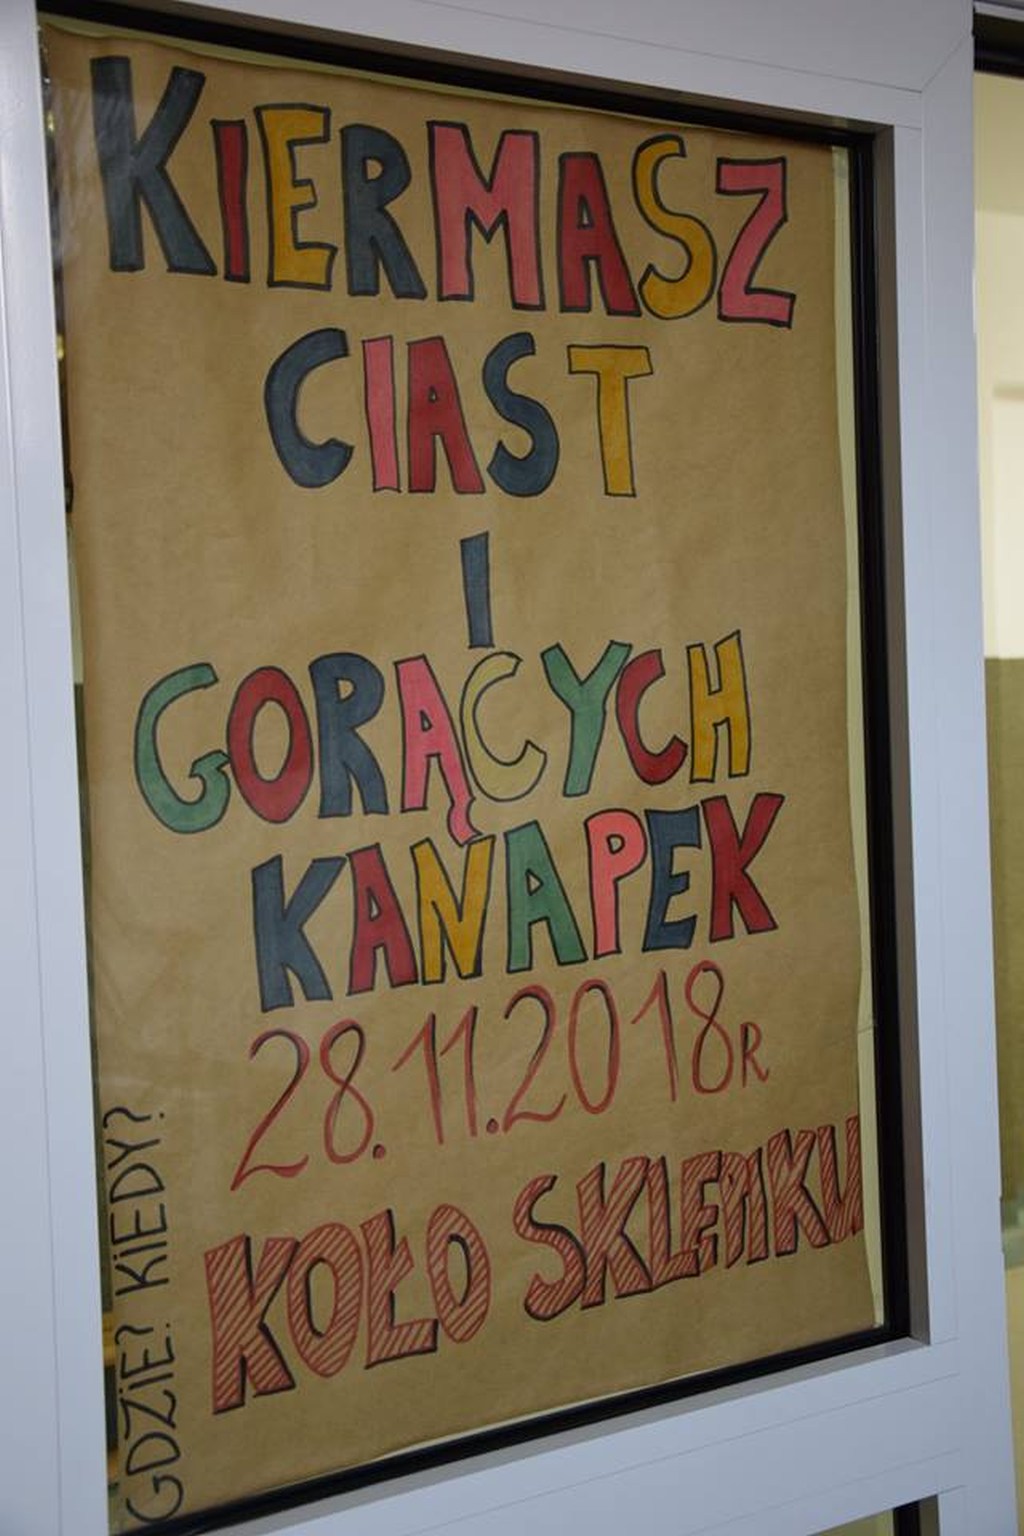 KIERMASZ
CIAST
I
GORĄCYCH
KANAPEK
28.11.2018R
KOŁO SKLEPIKU
GDZIE? KIEDY?